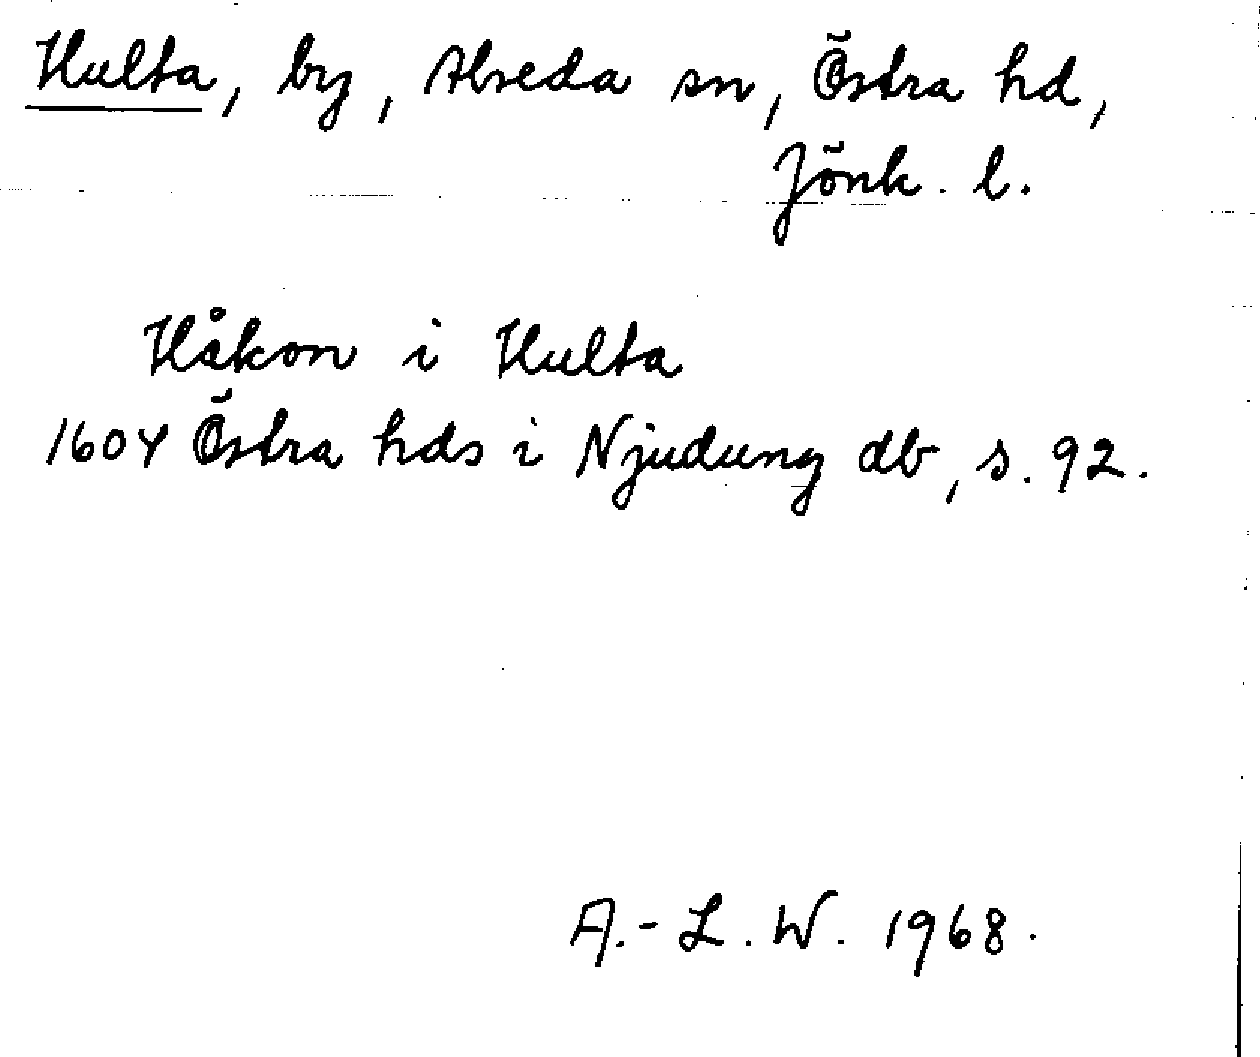 Hulta, by, Alseda sn, Östra hd,
Jönk. l.
Håkon i Hulta
1604 Östra hds i Njudung db, s. 92.
A.-L. W. 1968.